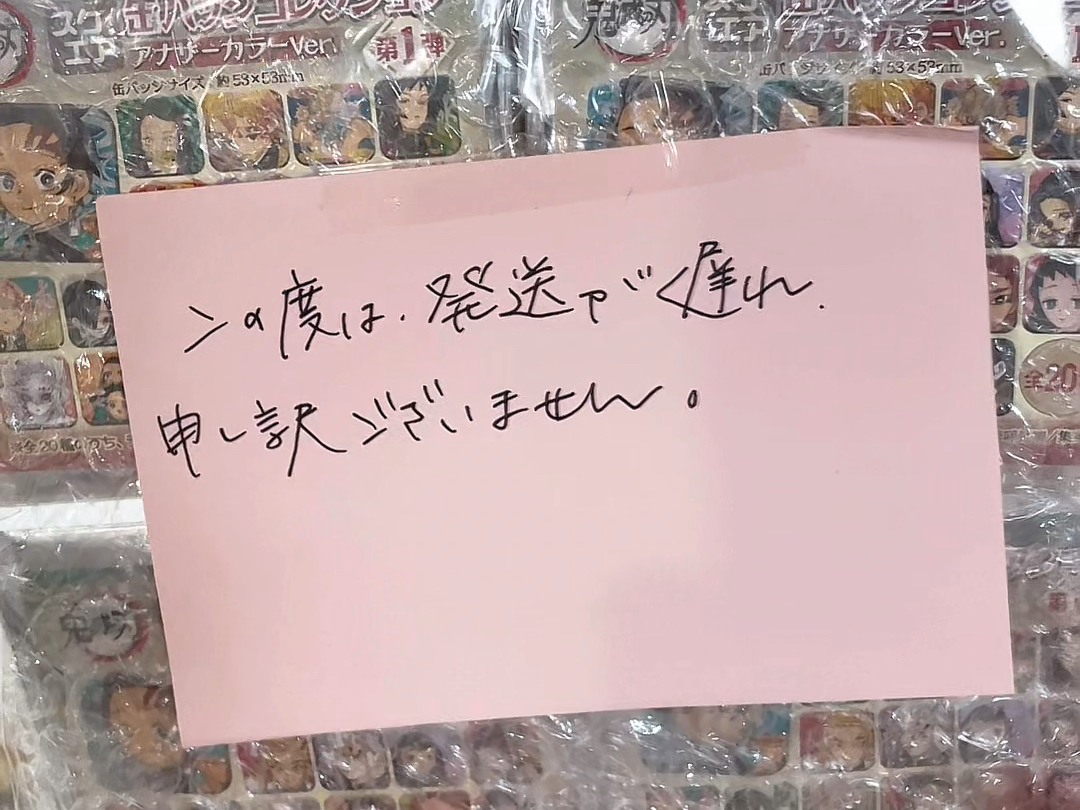 スク エア 缶バッジコレクション
アナザーカラーVer. 第1弾
缶バッジサイズ 約53×53mm
エア アナザーカラーVer.
缶バッジサイズ 約53×53mm
この度は、発送がく遅れ、
申し訳ございません。
全20
※全20種のうち、